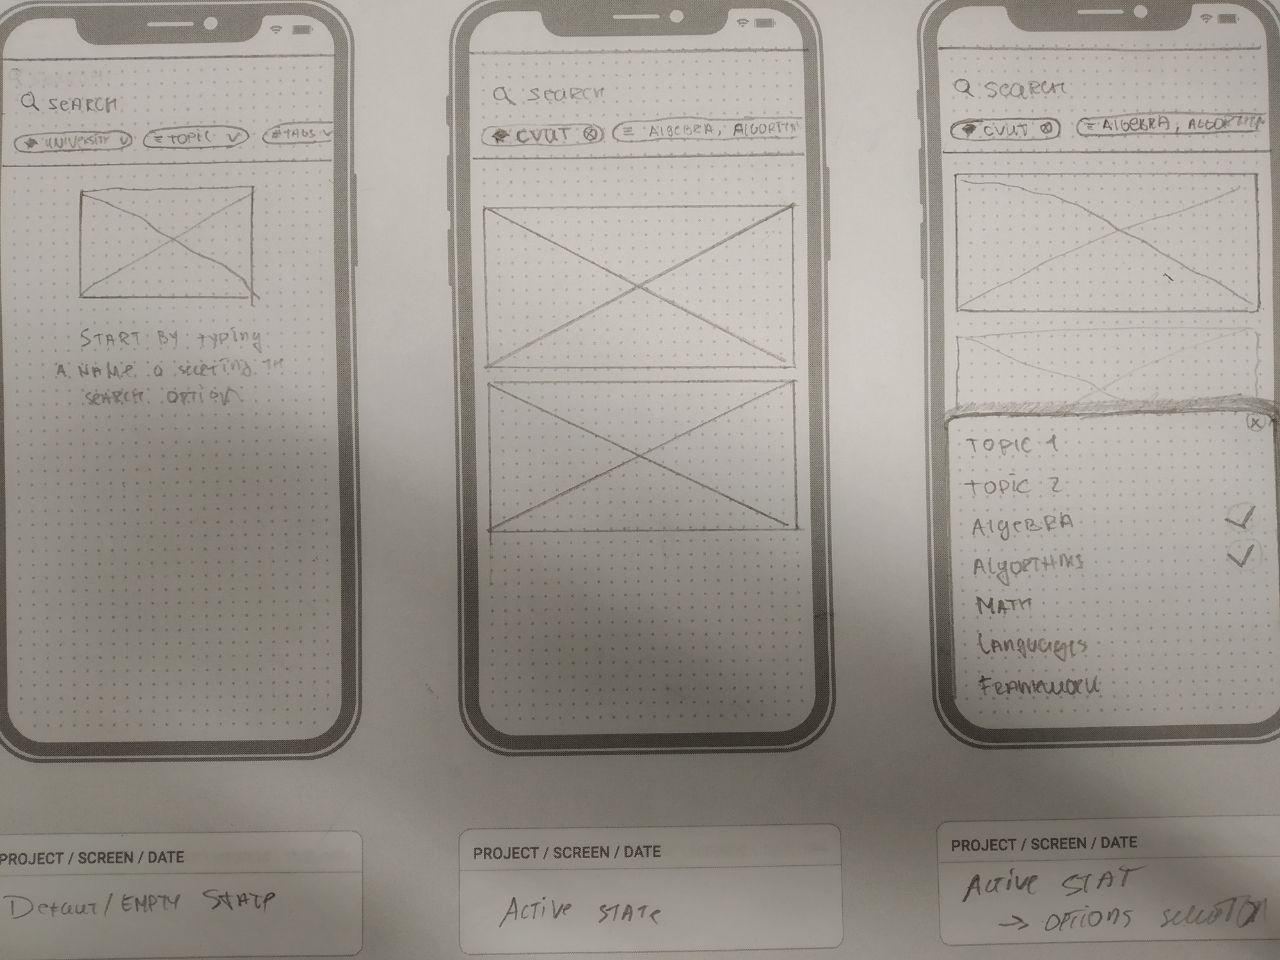 SEARCH
UNIVERSITY
TOPIC
#TAGS
START BY typing
A NAME o
SEARCH OPTION
PROJECT / SCREEN / DATE
Defaut/EMPTY STATE
search
CVUT
ALGEBRA, ALGORTHM
PROJECT / SCREEN / DATE
Active STATe
SEARCH
CVUT
ALGEBRA, ALGORTHM
TOPIC 1
TOPIC 2
AlgeBRA
AlgORTHMS
MATH
Languages
FRAMEWORK
PROJECT / SCREEN / DATE
Active STAT
→ OPTIONS selection